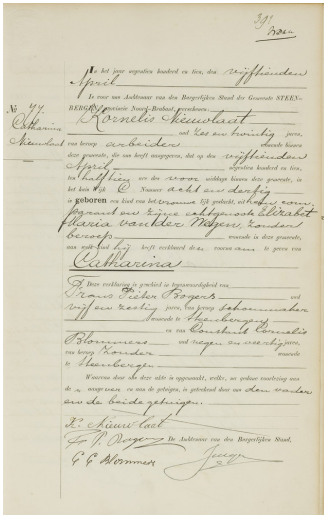 391
In het jaar negentien honderd en tien, den vijftienden
April
is voor ons Ambtenaar van den Burgerlijken Stand der Gemeente STEEN-
BERGEN, provincie Noord-Brabant, verschenen:
No 77.
Kornelis Nieuwlaat
Catharina
Nieuwlaat
oud zes en twintig jaren,
van beroep arbeider wonende binnen
deze gemeente, die ons heeft aangegeven, dat op den vijftienden
April negentienhonderd en tien,
ten half tien ure des voor middags binnen deze gemeente, in
het huis Wijk C Nummer acht en dertig
is geboren een kind van het vrouwelijk geslacht, uit hem com-
parant en zijne echtgenoote Elizabet
Maria van der Wegen, zonder
beroep in deze gemeente,
aan welk kind hij heeft verklaard de voornaam te geven van
Catharina
Deze verklaring is geschied in tegenwoordigheid van
Frans Pieter Bogers oud
vijf en zestig jaren, van beroep schoenmaker
wonende te Steenbergen
en van Constant Cornelis
Blommers oud negen en veertig jaren,
van beroep zonder wonende
te Steenbergen
Waarvan door ons deze akte is opgemaakt, welke, na gedane voorlezing aan
de aangever en aan de getuigen, is geteekend door ons, den vader
en de beide getuigen.
K. Nieuwlaat
F. P. Bogers
De Ambtenaar van den Burgerlijken Stand,
C C Blommers